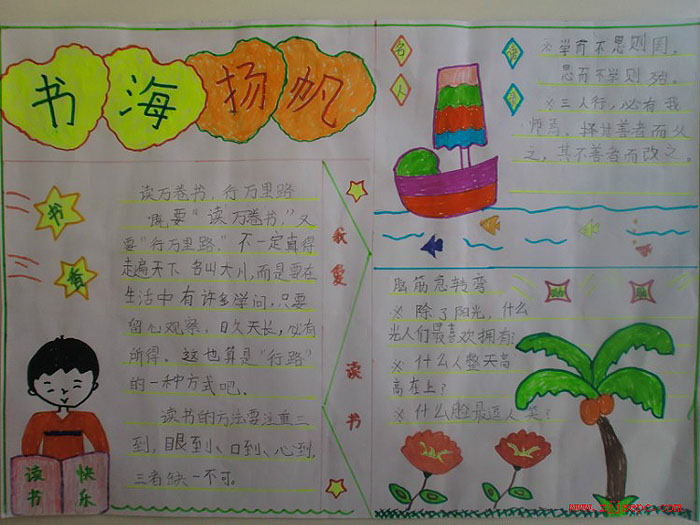 书海扬帆
书
香
读万卷书，行万里路
既要“读万卷书，”又
要“行万里路，”不一定真得
走遍天下名山大川，而是要在
生活中有许多学问，只要
留心观察，日久天长，必有
所得。这也算是“行路”
的一种方式吧。
读书的方法要注重三
到，眼到、口到、心到，
三者缺一不可。
读书
快乐
我爱读书
名人
※学而不思则罔，
思而不学则殆。
※三人行，必有我
师焉，择其善者而从
之，其不善者而改之。
脑筋急转弯
※除了阳光，什么
光人们最喜欢拥有？
※什么人整天高
高在上？
※什么脸最逗人笑？